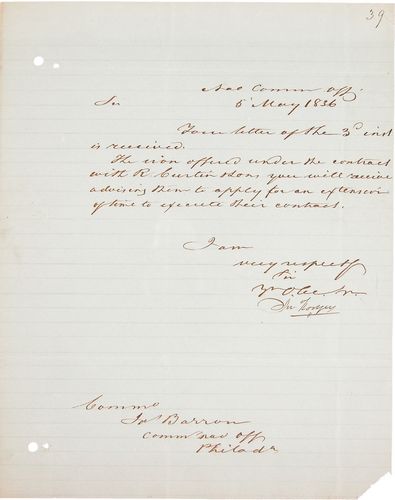 39
Nav Commrs off.
5 May 1836
Sir
Your letter of the 3d inst
is received.
The iron offered under the contract
with R Curtin & Sons you will receive
advising them to apply for an extension
of time to execute their contract.
I am
very respecty
Sir
Yr O. &c. Sr.
Commo
Jas Barron
Commg nav off
Philada